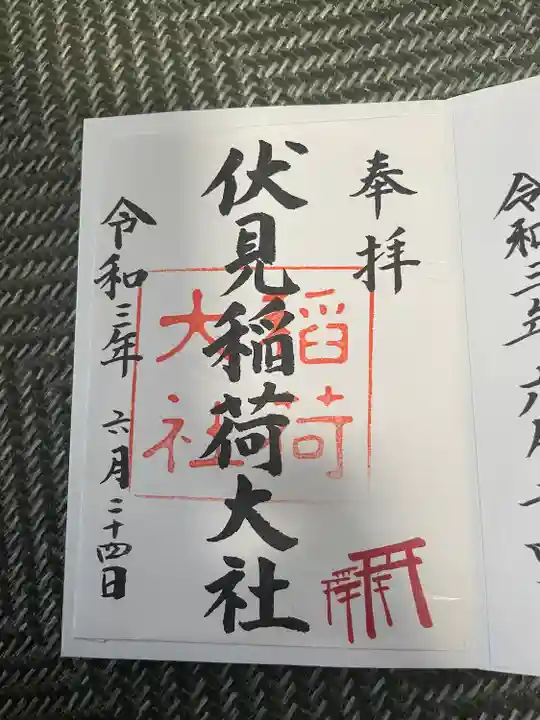 奉拝
伏見稲荷大社
稲荷大社
令和三年 六月二十四日
令和三年 六月二十四